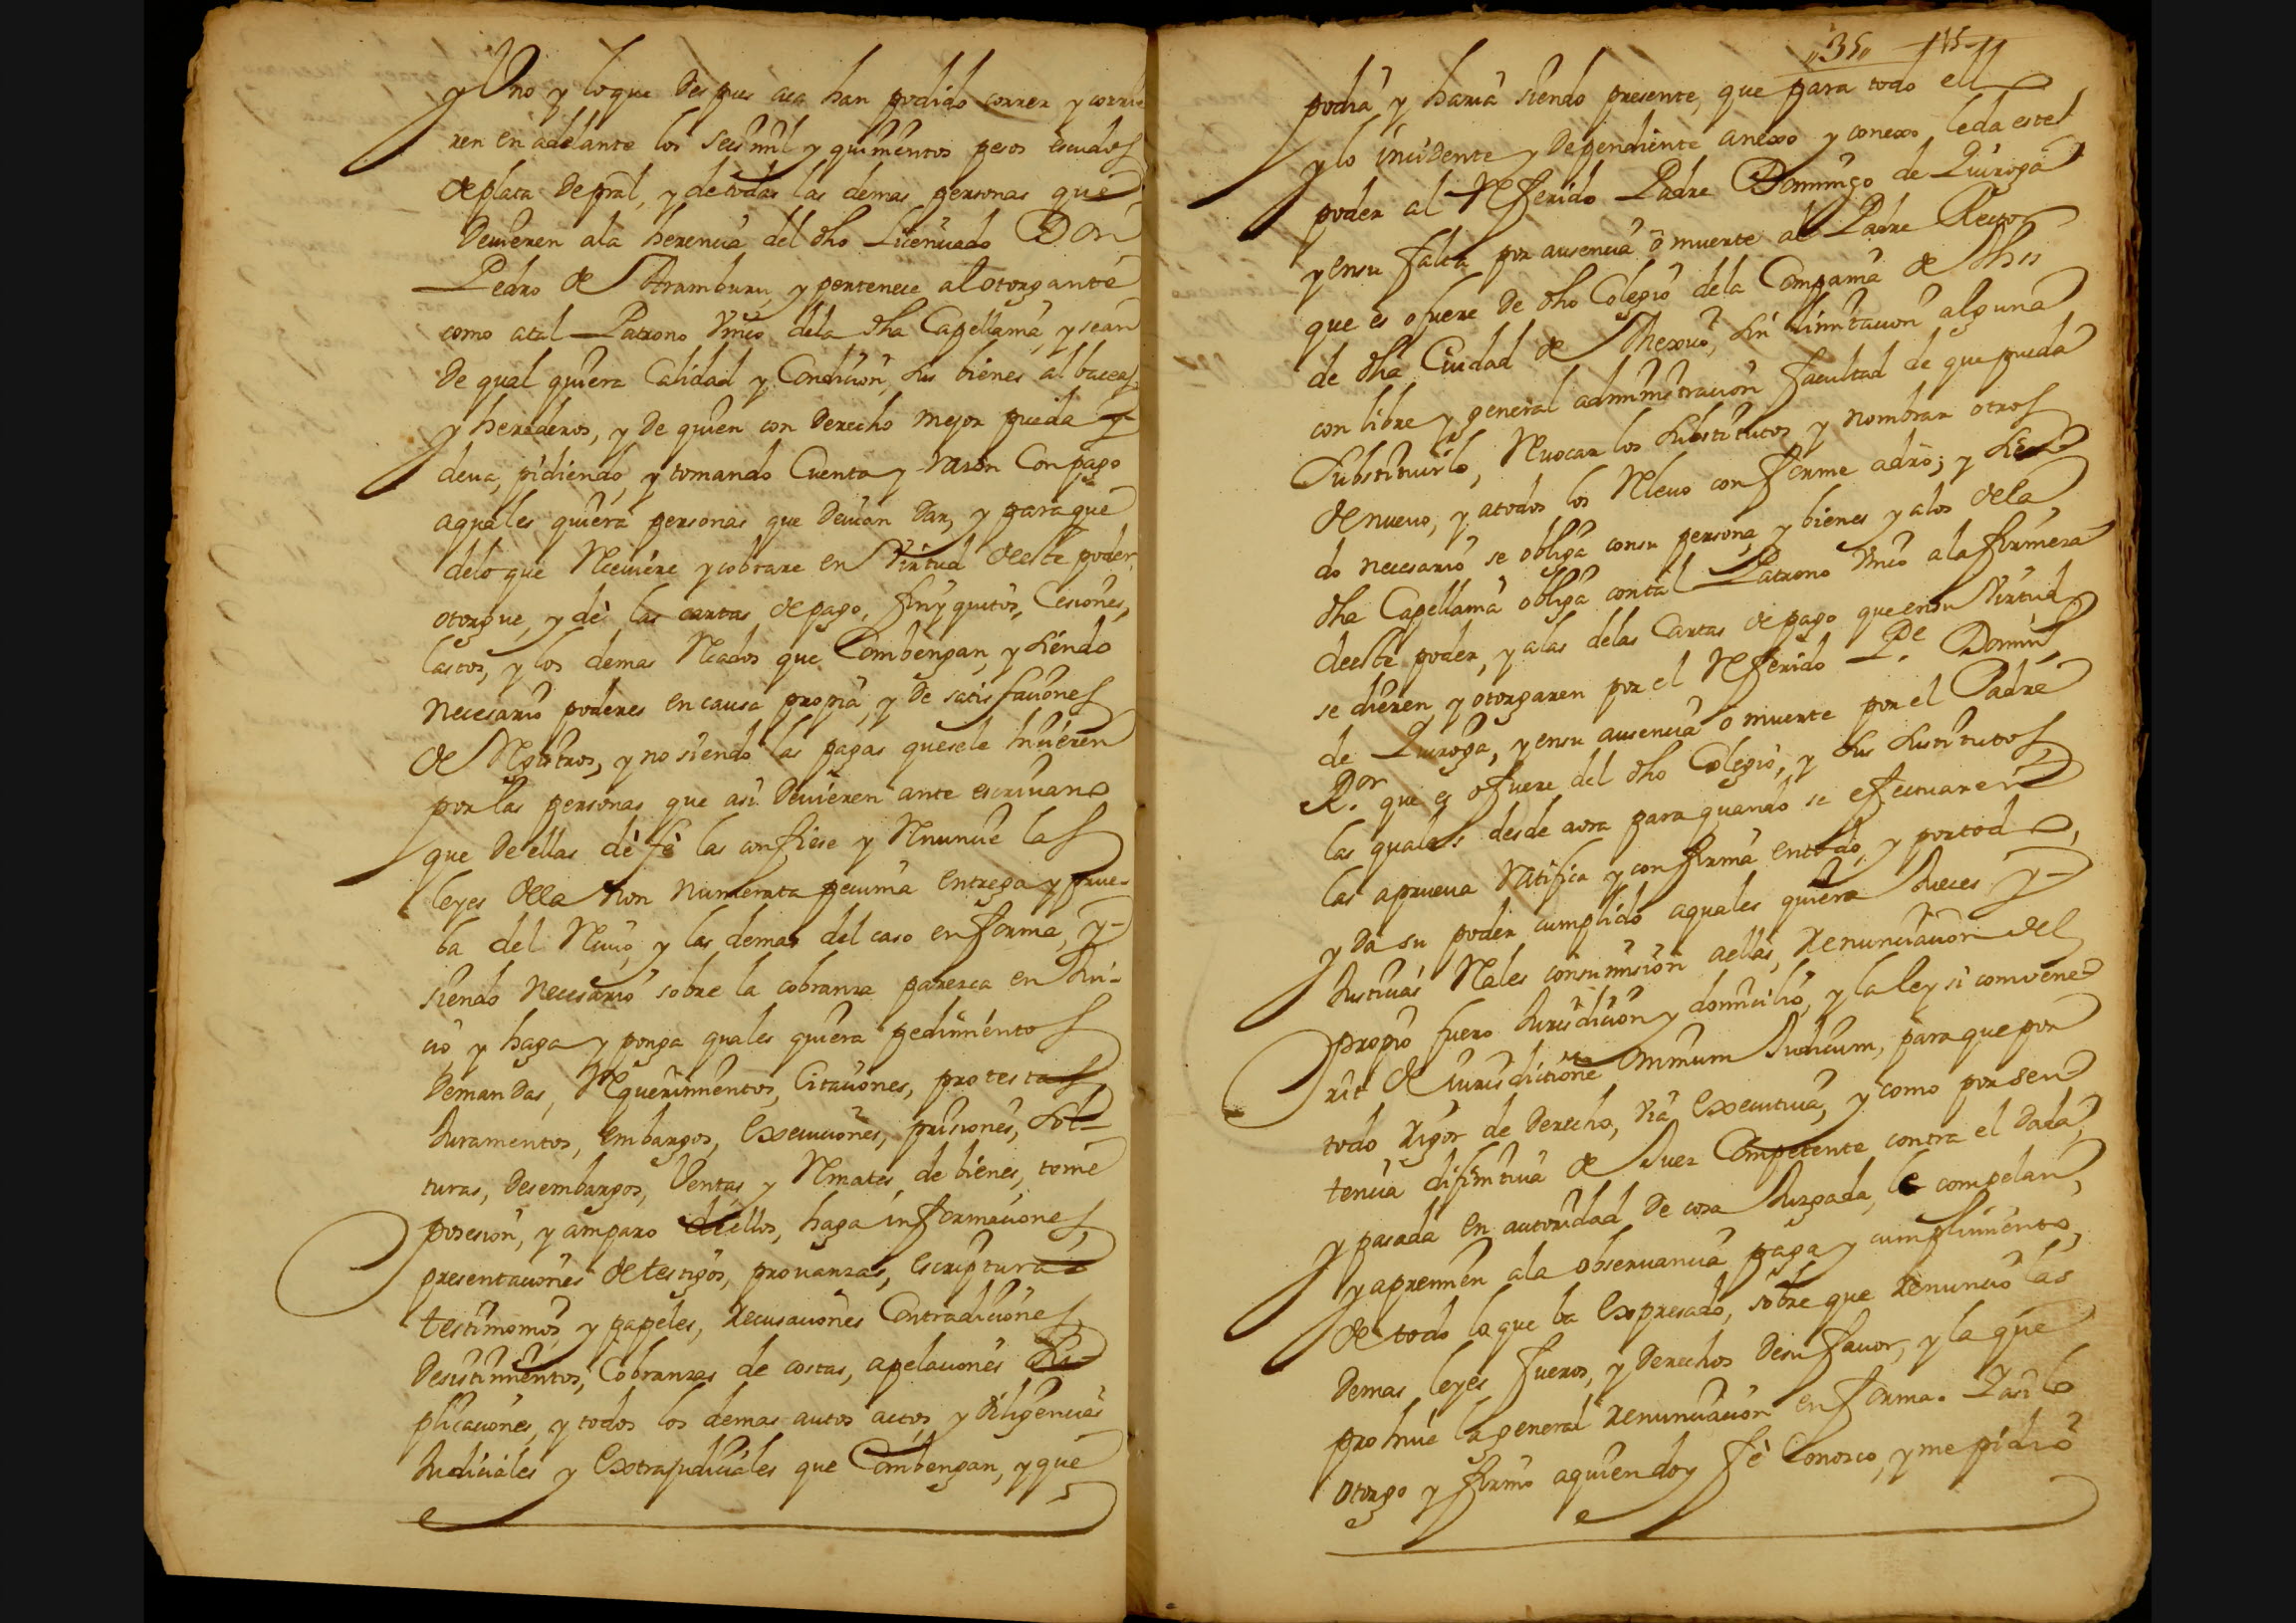 y Uno y loque despues aca han podido correr y corrie
ren en adelante los seis mil y quinientos pesos escudos
de plata de pral, y de todas las demas personas que
devieren ala herencia del dho Licenciado Don
Pedro de Aramburu, y pertenece al otorgante
como atal Patrono Vnico dela dha Capellania, y sean
de qual quiera Calidad y Condicion, sus bienes albaceas
y herederos, y de quien con derecho mejor pueda y
deva, pidiendo, y tomando Cuenta y razon Con pago
aquales quiera personas que devan dar, y paraque
delo que Reciviere y cobrare en Virtud deeste poder
otorgue, y dè las cartas de pago, finyquitos, Cesiones,
lastos, y los demas Recados que Combengan, y siendo
necesario poderes en causa propia, y de satisfaciones
de Registros, y no siendo las pagas quesele hicieren
por las personas que asi devieren ante escrivano
que de ellas dè fè las confiese y Renuncie las
leyes dela non numerata pecunia entrega y prue-
ba del Recivo, y las demas del caso en forma, y
siendo necesario sobre la cobranza parezca en Jui-
cio y haga y ponga quales quiera pedimentos
demandas, Requerimientos, Citaciones, protestas,
Juramentos, embargos, execuciones, prisiones, sol-
turas, desembargos, Ventas y Remates de bienes, tome
posesion, y amparo deellos, haga informaciones,
presentaciones de testigos, provanzas, escripturas
testimonios y papeles, recusaciones Contradiciones,
desistimientos, Cobranzas de costas, apelaciones su-
plicaciones, y todos los demas autos actos, y diligencias
Judiciales y extrajudiciales que Combengan, y que
"35"
podria y haria siendo presente, que para todo ello
y lo incidente y dependiente anexo y conexo leda este
poder al Referido Padre Domingo de Quiroga
y ensu falta por ausencia ò muerte al Padre Rector
que es o fuere de dho Colegio dela Compania de Jhs
de dha Ciudad de Mexico, sin limitacion alguna
con libre y general administracion facultad de que pueda
substituirlo, Revocar los substitutos y nombrar otros
de nuevo, y atodos los Relevo conforme adro; y sien
do necesario se obliga consu persona, y bienes y alos dela
dha Capellania obliga contal Patrono Vnico ala firmeza
deeste poder, y alas delas Cartas de pago que ensu Virtud
se dieren y otorgaren por el Referido Pe. Domin.
de Quiroga, y ensu ausencia ò muerte por el Padre
R.or que es o fuere del dho Colegio, y sus sustitutos,
las quales desde aora para quando se efectuaren
las aprueva ratifica y confirma entodo, y portodo,
y da su poder cumplido aquales quiera Jueces y
Justicias Reales consumision aellas, renunciacion del
propio fuero Jurisdicion y domicilio, y la ley si convene
rit de jurisdictione omnium Judicum, paraque por
todo rigor de derecho, via executiva, y como por sen
tencia difinitiva de Juez Competente contra el dada,
y pasada en autoridad de cosa Juzgada, le compelan,
y apremien ala observancia paga y cumplimiento,
de todo lo que ba expresado, sobre que renuncio las
demas leyes fueros, y derechos desu favor, y la que
prohive la general renunciacion en forma. Y asi lo
otorgo y firmo aquien doy fè Conosco, y me pidiò